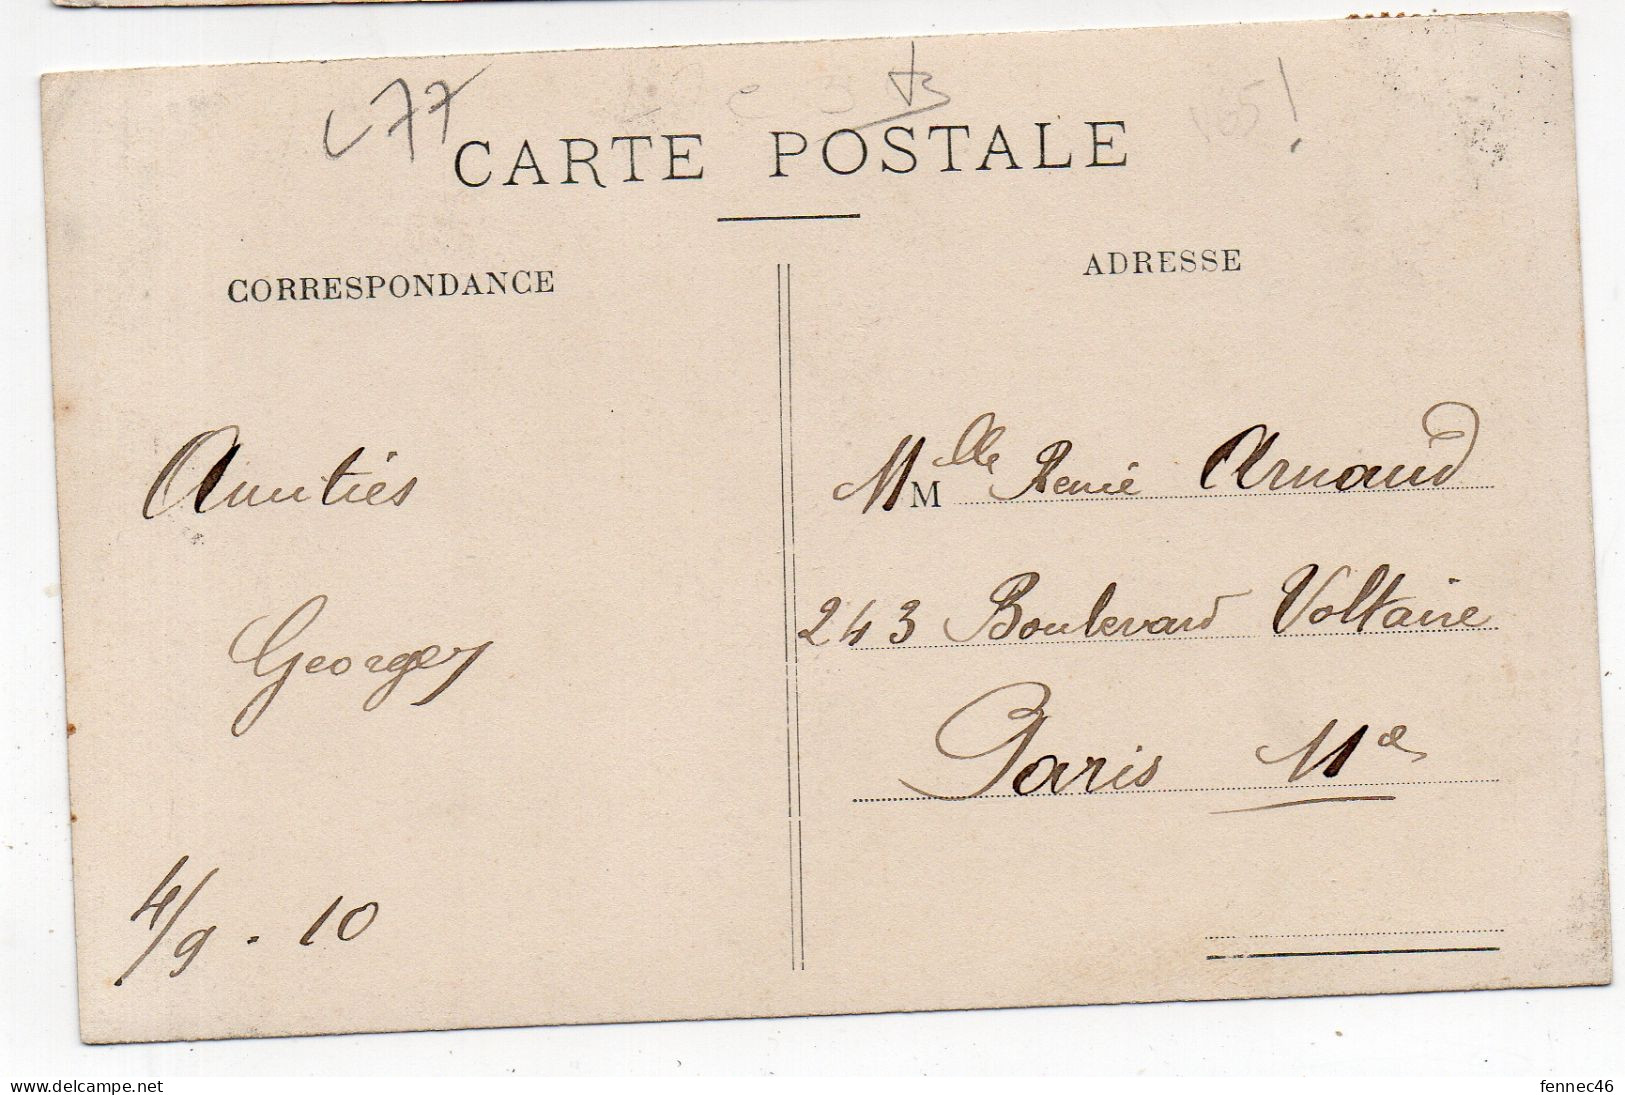 L77
CARTE POSTALE
CORRESPONDANCE
Amitiés
Georges
4/9 . 10
ADRESSE
Mlle M Renié Arnaud
243 Boulevard Voltaire
Paris 11e
www.delcampe.net
fennec46